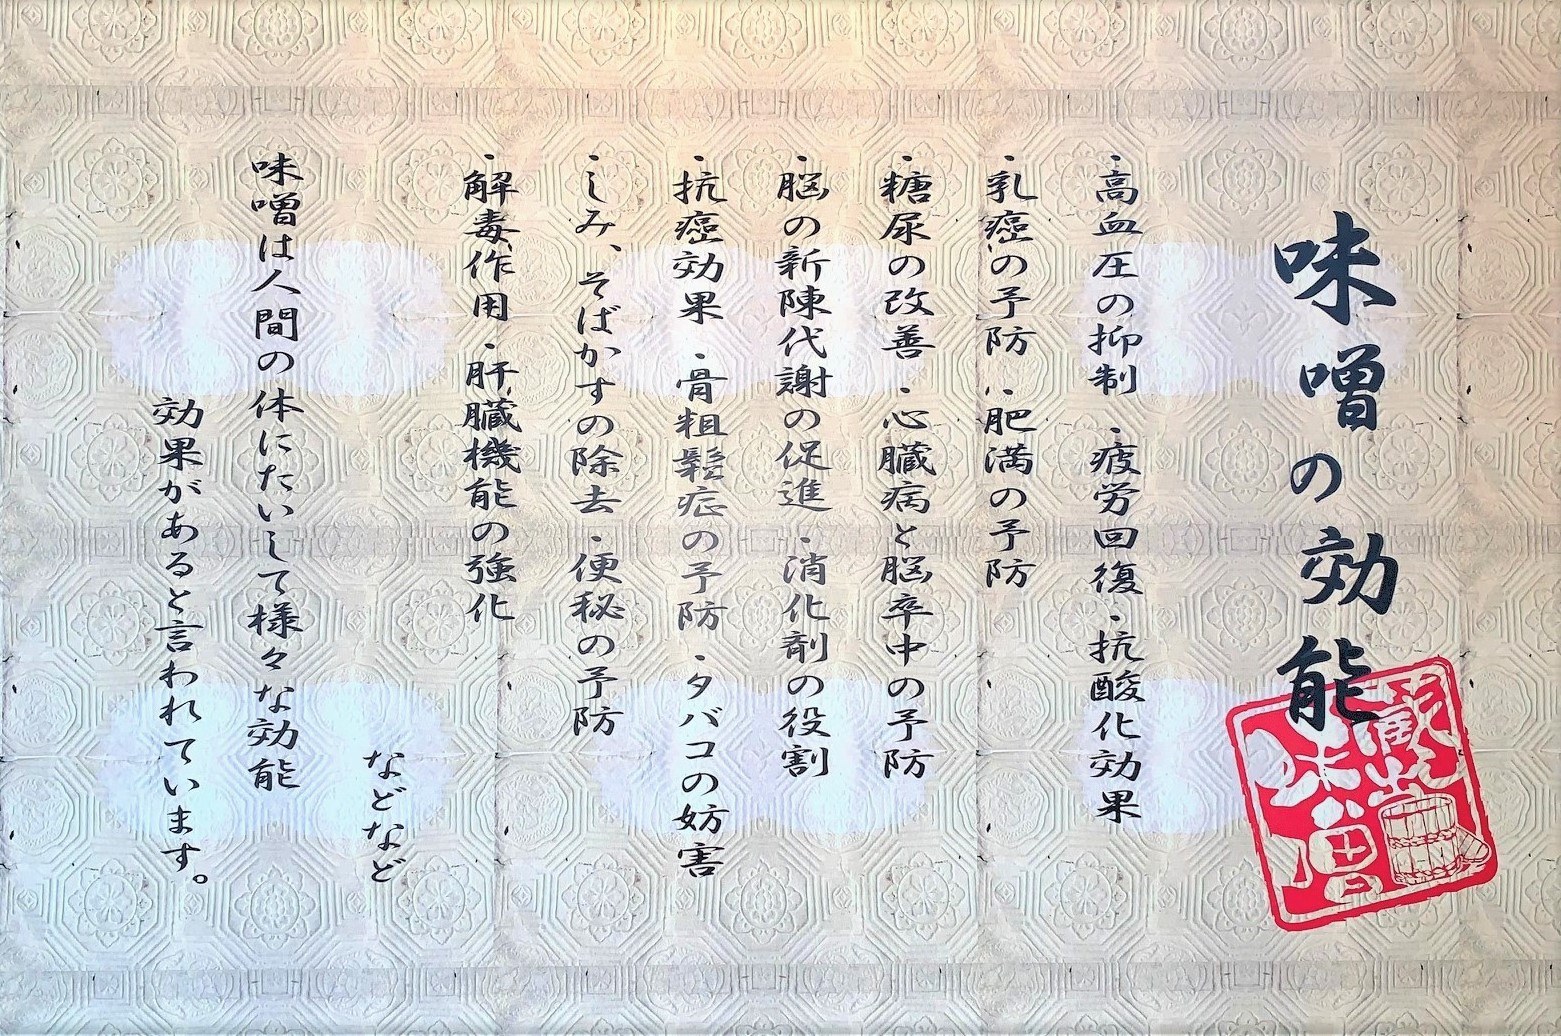 味噌の効能
蔵出
味噌
・高血圧の抑制 ・疲労回復 ・抗酸化効果
・乳癌の予防 ・肥満の予防
・糖尿の改善 ・心臓病と脳卒中の予防
・脳の新陳代謝の促進 ・消化剤の役割
・抗癌効果 ・骨粗鬆症の予防 ・タバコの妨害
・しみ、そばかすの除去 ・便秘の予防
・解毒作用 ・肝臓機能の強化
などなど
味噌は人間の体にたいして様々な効能
効果があると言われています。